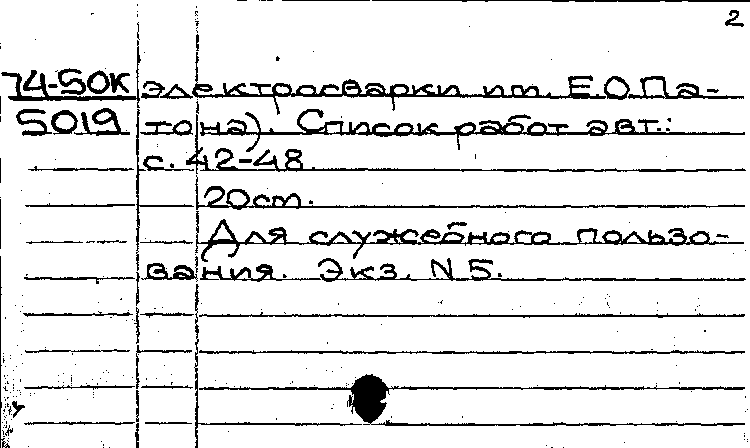 2
74-50К электросварки им. Е.О.Па-
5019 тона). Список работ авт.:
с. 42-48.
20см.
Для служебного пользо-
вания. Экз. N 5.